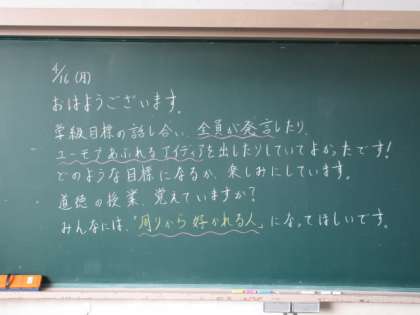 4/16(月)
おはようございます。
学級目標の話し合い、全員が発言したり、
ユーモアあふれるアイディアを出したりしていてよかったです!
どのような目標になるか、楽しみにしています。
道徳の授業、覚えていますか?
みんなには、「周りから好かれる人」になってほしいです。